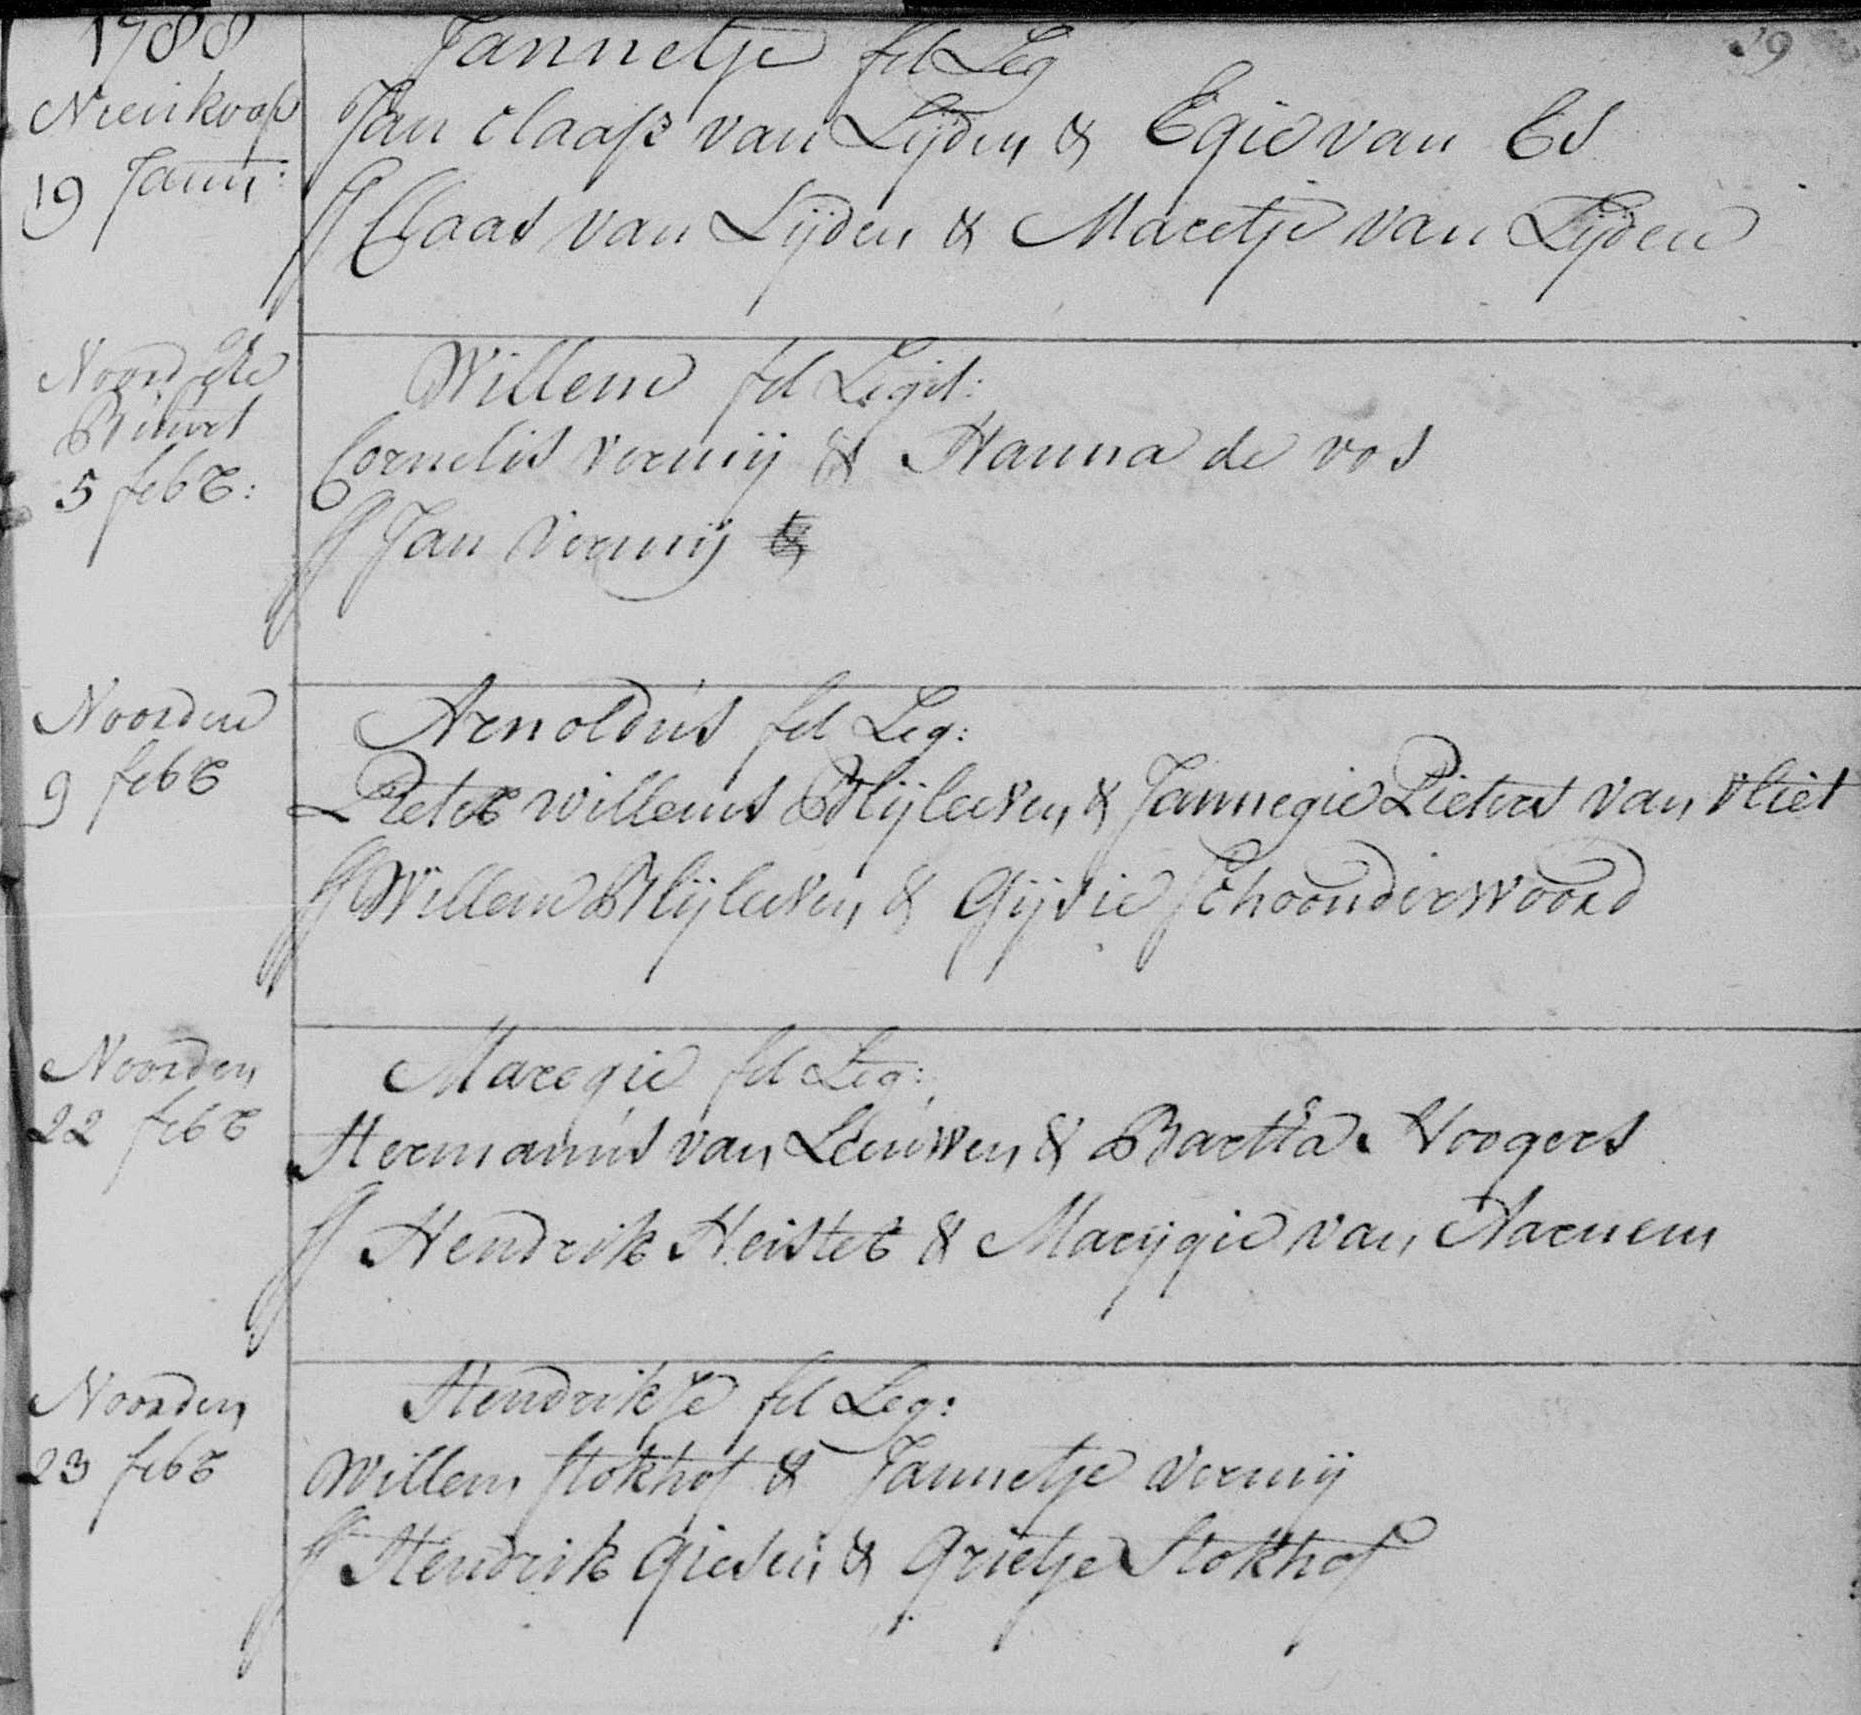 1788
19
Nieukoop
19 Janu:
Jannetje fil Leg
Jan Claasz van Lijden & Egie van Es
ff Claas van Lijden & Maretje van Lijden
5 febr:
Willem fil Legit:
Cornelis Vermij & Hanna de vos
ff Jan Vermij &
Noorden
9 febr
Arnoldus fil Leg:
Pieter Willems Blijleven & Jannegie Pieters van vliet
ff Willem Blijleven & Gijsie Schoonderwoord
Noorden
22 febr
Maregie fil Leg:
Hermanus van Leeuwen & Bartha Hoogers
ff Hendrik Heister & Marijgie van Aarnem
Noorden
23 febr
Hendrikje fil Leg:
Willem Stokhof & Jannetje Vermij
ff Hendrik Giesen & Grietje Stokhof